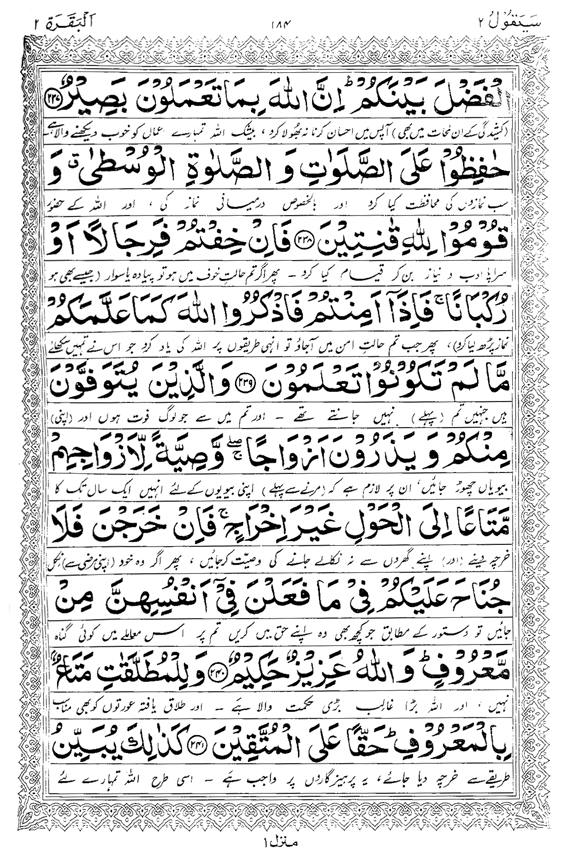 سَيَقُوْلُ ٢ ١٨٤ اَلْبَقَرَة ٢
الْفَضْلَ بَيْنَكُمْ ؕ اِنَّ اللّٰهَ بِمَا تَعْمَلُوْنَ بَصِيْرٌ ﴿٢٣٧﴾
(کشیدگی کے ان لمحات میں بھی) آپس میں احسان کرنا نہ بھولا کرو، بیشک اللہ تمہارے اعمال کو خوب دیکھنے والا ہے
حٰفِظُوْا عَلَى الصَّلَوٰتِ وَ الصَّلٰوةِ الْوُسْطٰى ۗ وَ
سب نمازوں کی محافظت کیا کرو اور بالخصوص درمیانی نماز کی، اور اللہ کے حضور
قُوْمُوْا لِلّٰهِ قٰنِتِيْنَ ﴿٢٣٨﴾ فَاِنْ خِفْتُمْ فَرِجَالًا اَوْ
سراپا ادب و نیاز بن کر قیام کیا کرو ۔ پھر اگر تم حالتِ خوف میں ہو تو پیادہ یا سوار (جیسے بھی ہو
رُكْبَانًا ۚ فَاِذَآ اَمِنْتُمْ فَاذْكُرُوا اللّٰهَ كَمَا عَلَّمَكُمْ
نماز پڑھ لیا کرو)، پھر جب تم حالتِ امن میں آجاؤ تو انہی طریقوں پر اللہ کی یاد کرو جو اس نے تمہیں سکھائے
مَّا لَمْ تَكُوْنُوْا تَعْلَمُوْنَ ﴿٢٣٩﴾ وَالَّذِيْنَ يُتَوَفَّوْنَ
ہیں جنہیں تم (پہلے) نہیں جانتے تھے ۔ اور تم میں سے جو لوگ فوت ہوں اور (اپنی)
مِنْكُمْ وَ يَذَرُوْنَ اَزْوَاجًا ۚۖ وَّصِيَّةً لِّاَزْوَاجِهِمْ
بیویاں چھوڑ جائیں، ان پر لازم ہے کہ (مرنے سے پہلے) اپنی بیویوں کے لئے انہیں ایک سال تک کا
مَّتَاعًا اِلَى الْحَوْلِ غَيْرَ اِخْرَاجٍ ۚ فَاِنْ خَرَجْنَ فَلَا
خرچہ دینے (اور) اپنے گھروں سے نہ نکالے جانے کی وصیّت کر جائیں، پھر اگر وہ خود (اپنی مرضی سے) نکل
جُنَاحَ عَلَيْكُمْ فِيْ مَا فَعَلْنَ فِيْٓ اَنْفُسِهِنَّ مِنْ
جائیں تو دستور کے مطابق جو کچھ بھی وہ اپنے حق میں کریں تم پر اس معاملے میں کوئی گناہ
مَّعْرُوْفٍ ؕ وَاللّٰهُ عَزِيْزٌ حَكِيْمٌ ﴿٢٤٠﴾ وَلِلْمُطَلَّقٰتِ مَتَاعٌۢ
نہیں، اور اللہ بڑا غالب بڑی حکمت والا ہے ۔ اور طلاق یافتہ عورتوں کو بھی مناسب
بِالْمَعْرُوْفِ ؕ حَقًّا عَلَى الْمُتَّقِيْنَ ﴿٢٤١﴾ كَذٰلِكَ يُبَيِّنُ
طریقے سے خرچہ دیا جائے، یہ پرہیزگاروں پر واجب ہے ۔ اسی طرح اللہ تمہارے لئے
منزل ١